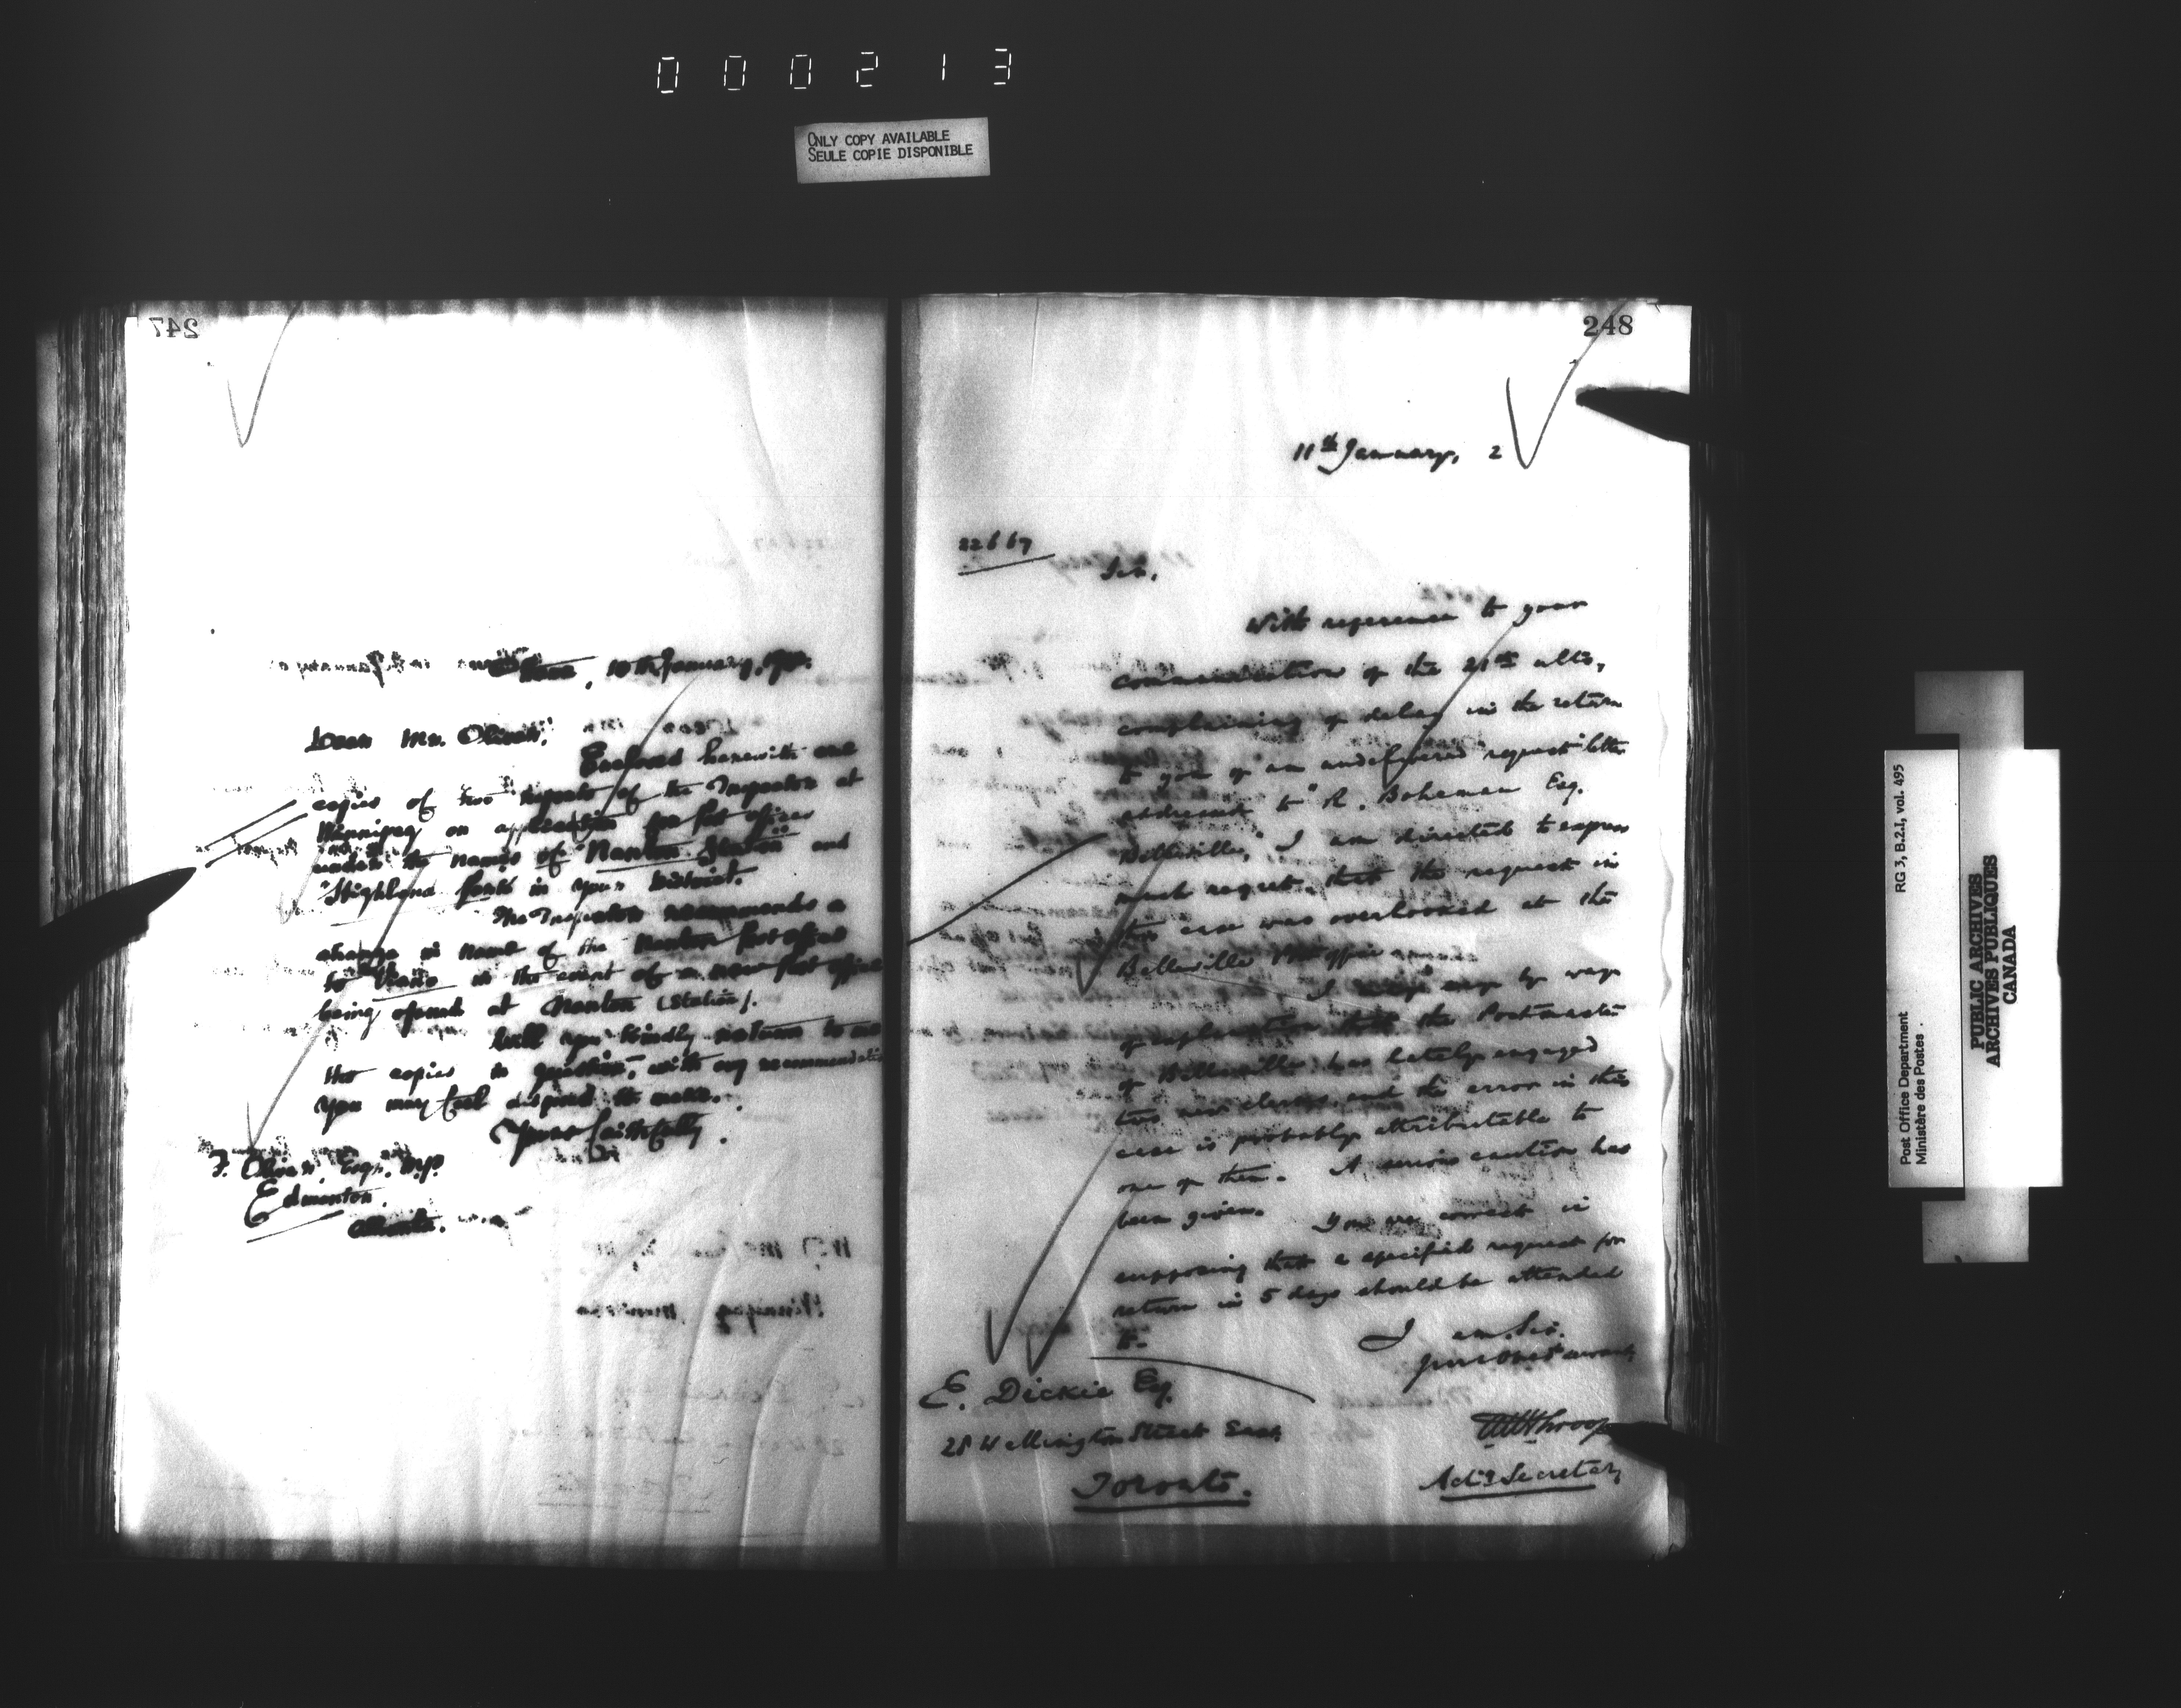 000213
ONLY COPY AVAILABLE
SEULE COPIE DISPONIBLE
247
10th January,
Dear Mr. Oliver,
Enclosed herewith are
copies of two reports of the Inspector at
Winnipeg on application for post offices
under the names of "Nanton Station" and
"Highland" in your District.
The Inspector recommends a
change in name of the Nanton post office
to in the event of a new post office
being opened at Nanton (Station).
Will you kindly return to me
the copies in question, with any recommendation
you may feel disposed to make.
Yours faithfully
F. Oliver, Esqr. M.P.
Edmonton.
Alberta.
248
11th January, 2
22667
Sir,
With reference to your
communication of the 21st ulto,
complaining of delay in the return
to you of an undelivered "request" letter
addressed to "R. Boheman Esq.
Belleville," I am directed to express
much regret that the request in
this case was overlooked at the
Belleville Post office
I may by way
of explanation that the Postmaster
of Belleville has lately engaged
two new clerks, and the error in this
case is probably attributable to
one of them. A serious caution has
been given. You are correct in
supposing that a specified request for
return in 5 days should be attended
to.
I am, Sir,
Your Obedt servant,
E. Dickie Esq.
28 Wellington Street East,
Toronto.
Actg Secretary
RG 3, B.2.1, vol. 495
Post Office Department
Ministère des Postes
PUBLIC ARCHIVES
ARCHIVES PUBLIQUES
CANADA